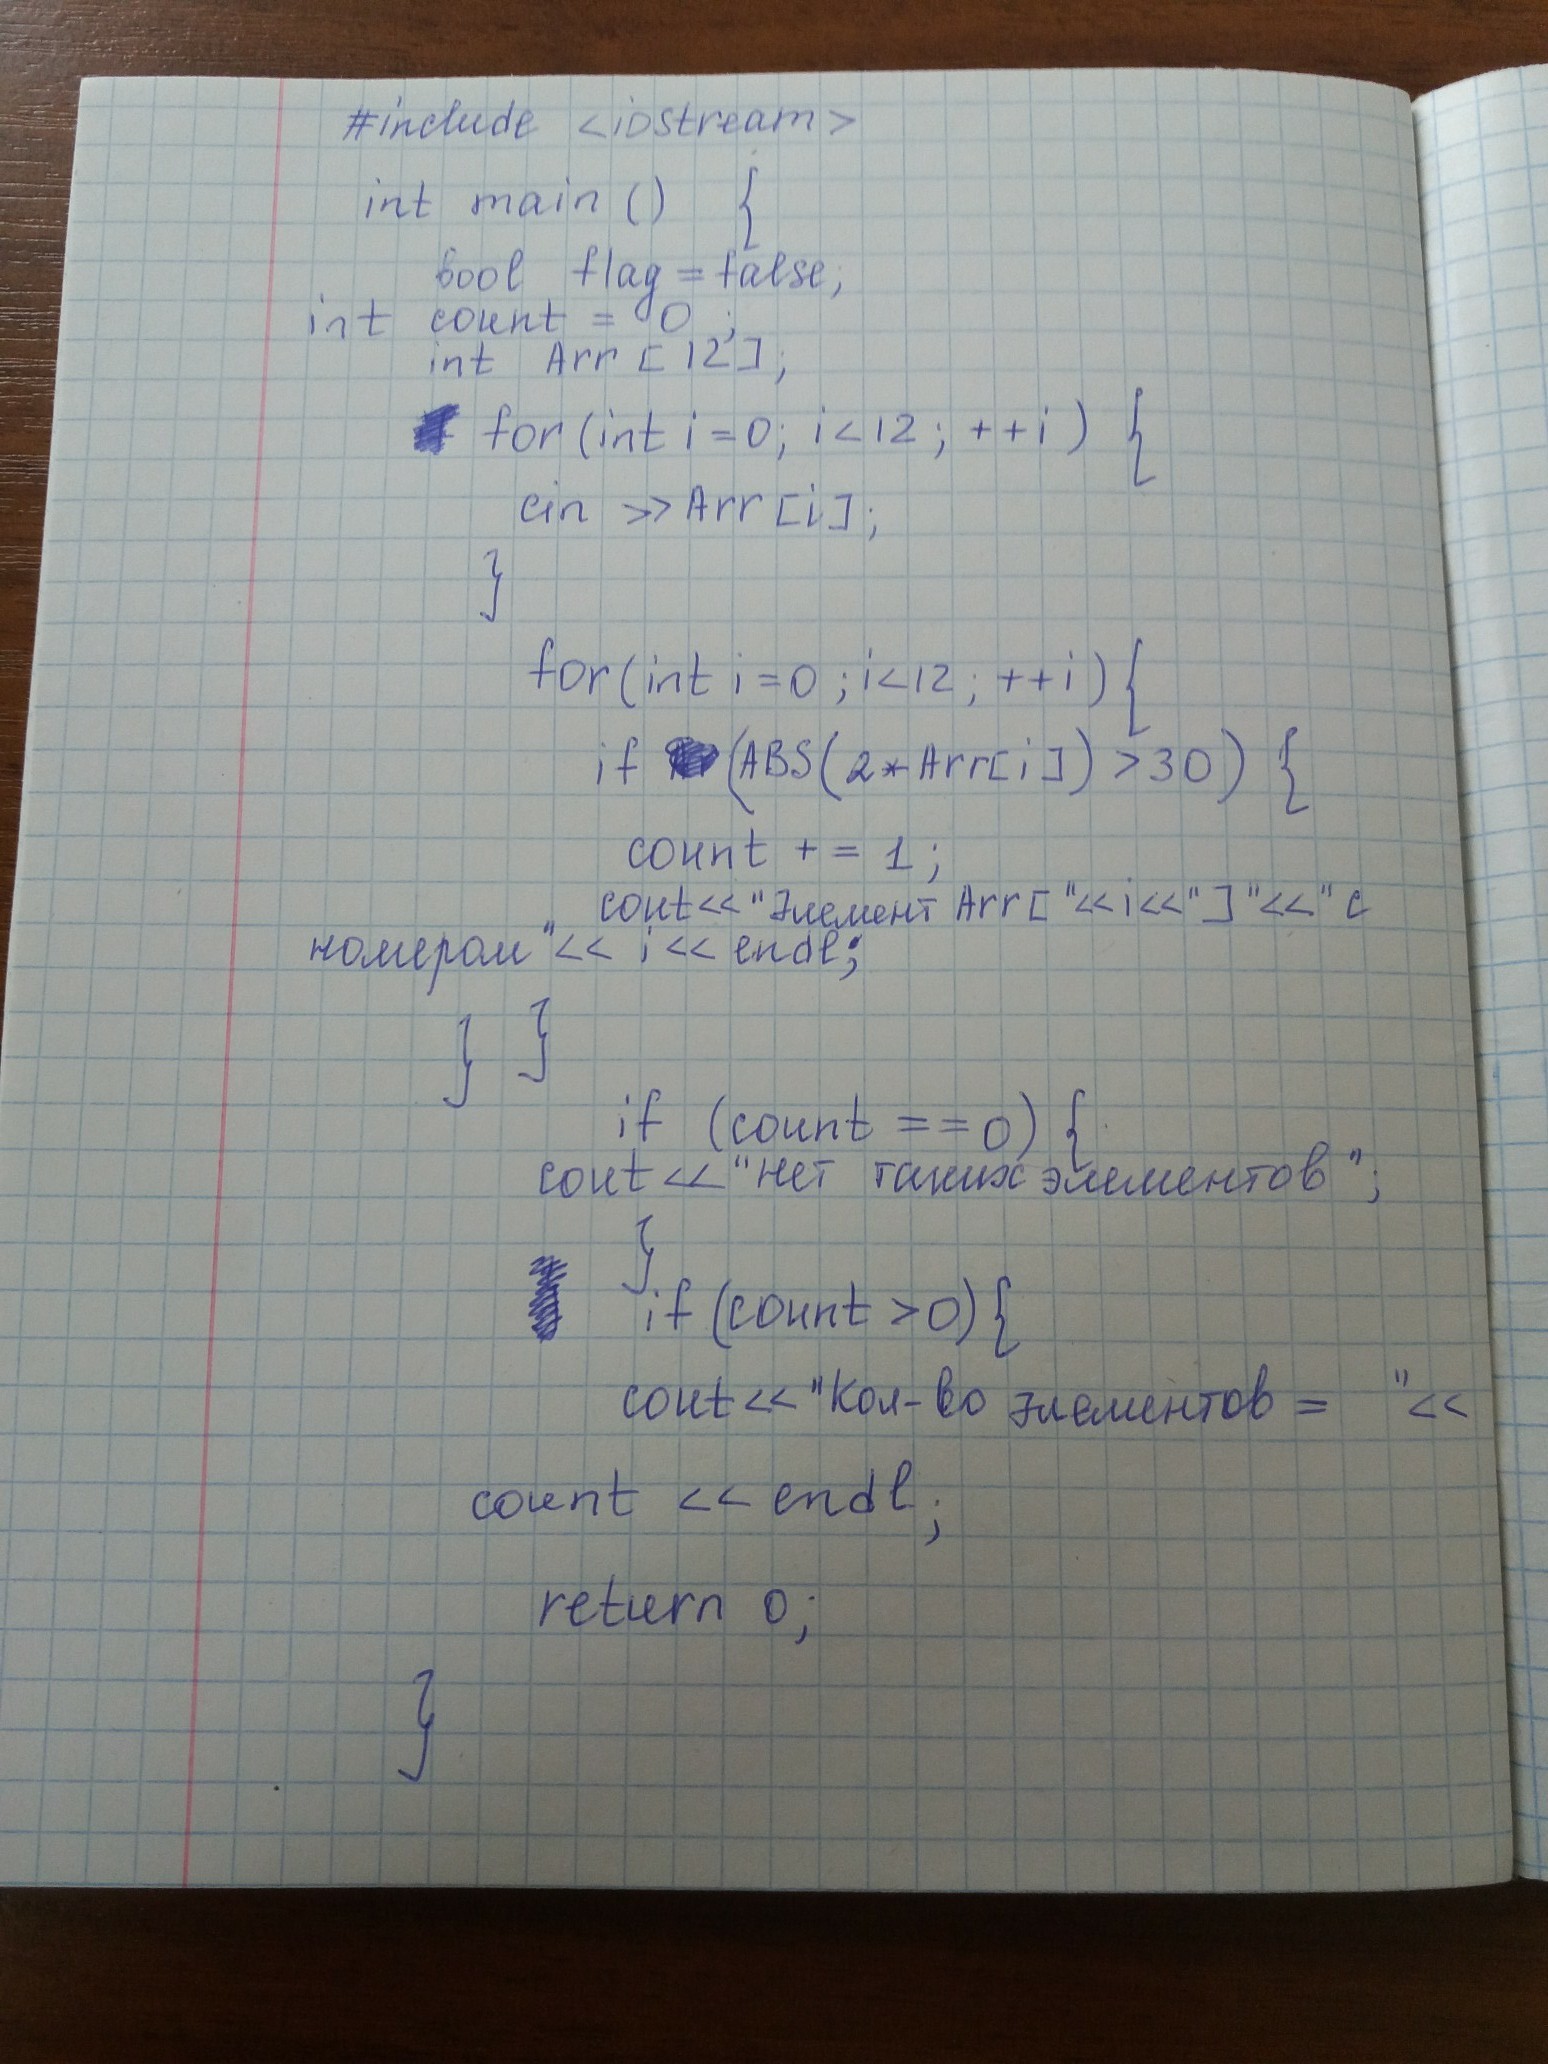 #include <iostream>
int main () {
bool flag = false;
int count = 0 ;
int Arr [12];
for (int i = 0; i < 12 ; ++i) {
cin >> Arr [i];
}
for (int i = 0 ; i < 12 ; ++i) {
if (ABS (2 * Arr[i]) > 30) {
count += 1 ;
cout << "Элемент Arr [" << i << "]" << " с
номером" << i << endl;
} }
if (count == 0) {
cout << "Нет таких элементов";
}
if (count > 0) {
cout << "Кол-во элементов = " <<
count << endl;
return 0;
}